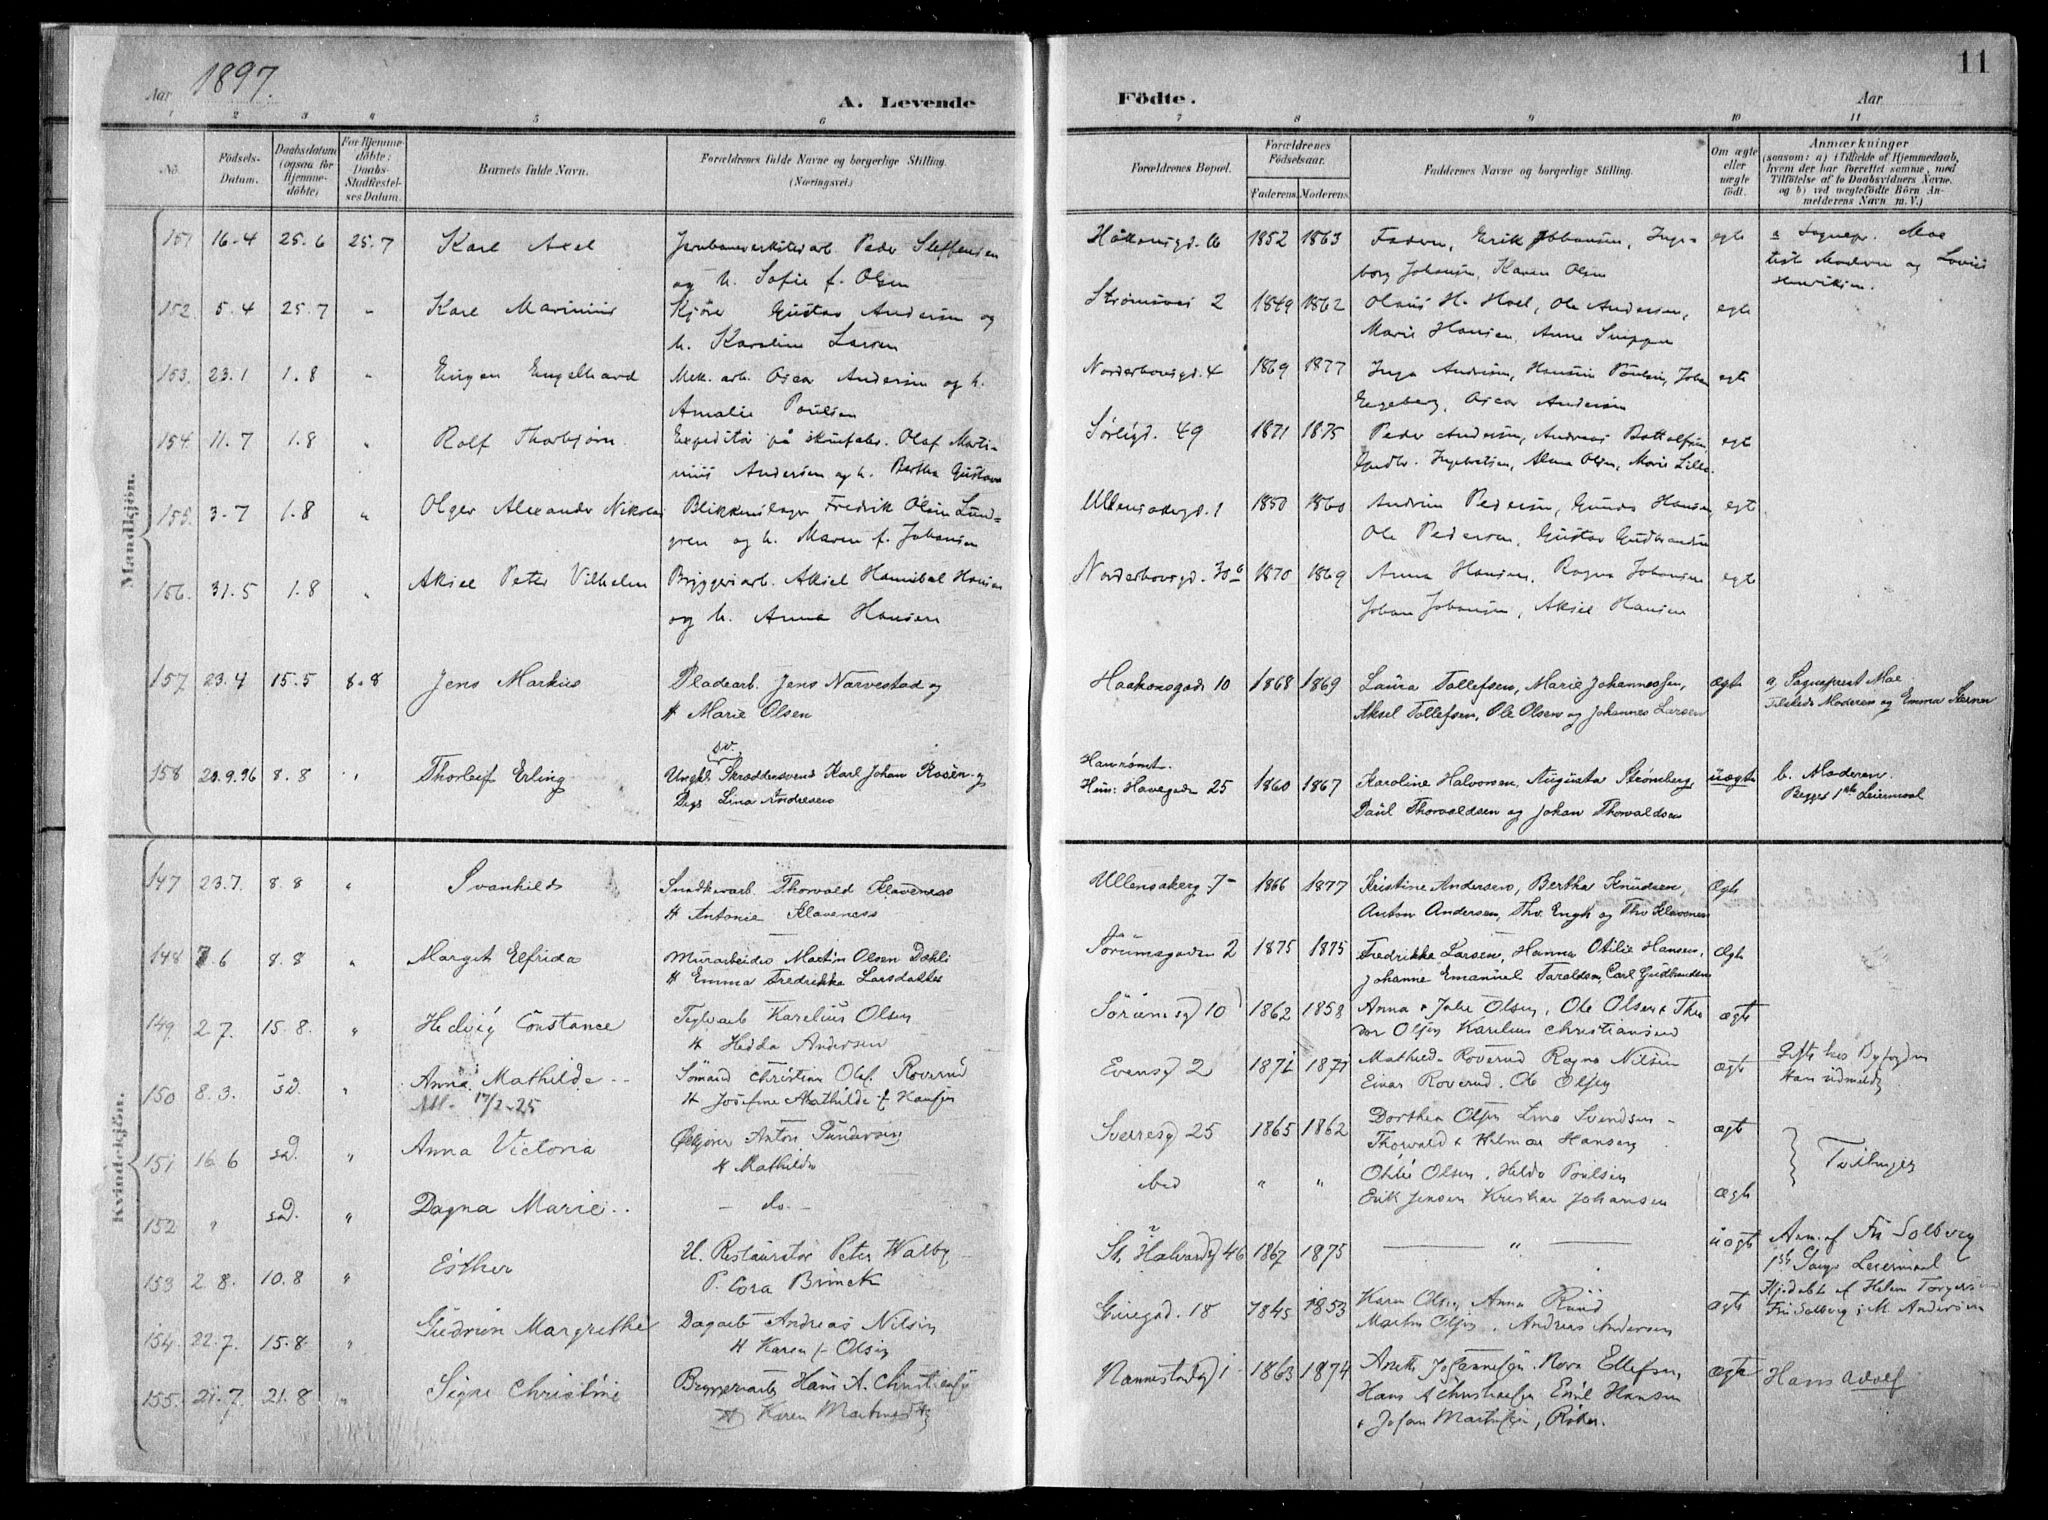 Aar 1897.
A. Levende
Födte.
Aar
11
1 2 3 4 5 6 7 8 9 10 11
No. Födsels-Datum. Daabsdatum (ogsaa for Hjemmedöbte) For Hjemmedöbte: Daabs-Stadfæstelses Datum. Barnets fulde Navn. Forældrenes fulde Navne og borgerlige Stilling. (Næringsvei.) Forældrenes Bopæl. Forældrenes Födselsaar. Faderens Moderens Faddernes Navne og borgerlige Stilling. Om ægte eller uægte födt. Anmærkninger
(saasom: a) i Tilfælde af Hjemmedaab,
hvem der har forrettet samme, med
Tilföielse af to Daabsvidners Navne,
og b) ved uægtefödte Börn Anmelderens Navn m. V.)
Mandkjön.
151 16.4 25.6 25.7 Karl Axel Jernbaneverkstedarb. Peder Steffensen Håkonsgd. 1852 1863 Faderen, Erik Johansen, Inge- egte a Sognepr. Moe
og h. Sofie f. Olsen borg Johansen, Karen Olsen test Moderen og Lovise
Henriksen.
152. 5.4 25.7 " Karl Marinius Kjöre Gustav Andersen og Strömsvei 2 1849 1862 Olaus H. Hoel, Ole Andersen, egte
h. Karoline Larsen Marie Hansen, Anna
153. 23.1 1.8 " Eugen Engelhard Mek. arb. Oscar Andersen og h. Norderhovsgd. 4 1869 1877 Inga Andersen, Hansine Poulsen, Johan egte
Amalie Poulsen Engeberg, Oscar Andersen
154. 11.7 1.8 " Rolf Thorbjørn Expeditør på Olaf Marti- Sørligd. 49 1871 1875 Peder Andersen, Andreas Bottolfsen, egte
nius Andersen og h. Bertha Gustava Ingebretsen, Alma Olsen, Marie Lille.
155. 3.7 1.8 " Olger Alexander Nikolai Blikkenslager Fredrik Olsen Lund- Ullensakergd. 1 1850 1860 Andrine Pedersen, Hansen, egte
gren og h. Maren f. Johansen Ole Pedersen, Gustav Gudbrandsen
156. 31.5 1.8 " Aksel Peter Vilhelm Bryggeriarb. Aksel Hannibal Hansen Norderhovsgd. 30 1870 1869 Anna Hansen, Ragna Johansen egte
og h. Anna Hansen Johan Johansen, Aksel Hansen
157 23.4 15.5 8.8 Jens Markus Pladearb. Jens Narvestad og Haakonsgade 10 1868 1869 Laura Tollefsen, Marie Johannessen, Ægte a, Sognepræst Moe
H Marie Olsen Aksel Tollefsen, Ole Olsen og Johannes Larsen Tilstede Moderen og Emma Sterner
158 20.9.96 8.8 " Thorleif Erling Ungkl. sv. Skræddersvend Karl Johan Rosén og Hans: Havegaden 25 1860 1867 Karoline Halvorsen, Augusta Strömberg uægte b. Moderen.
Pige Lina Andresen Paul Thorvaldsen og Johan Thorvaldsen Begges 1ste Leiermaal
Kvindekjön.
147 23.7. 8.8 " Svanhild Snedkerarb. Thorvald Klaveness Ullensakerg 7 1866 1877 Kristine Andersen, Bertha Knudsen, Ægte
H Antonie Klaveness Anton Andersen, Thv. Engh og Thv Klaveness
148 7.6 8.8 " Margit Elfrida Murarbeider Martin Olsen Dæhli Sörumsgaden 2 1875 1875 Fredrikke Larsen, Hanna Otilie Hansen, Ægte
H Emma Fredrikke Larsdatter Johanne Emanuel Taraldsen, Carl Gudbrandsen
149. 2.7. 15.8. " Hedvig Constance Teglvarb Karelius Olsen Sörumsg 10 1862 1858 Anna & Julie Olsen, Ole Olsen & Theo ægte
H Hedda Andersen dor Olsen Karelius Christiansen
150 8.3. sd. " Anna Mathilde Sömand Christian Olaf. Roverud Evensg 2 1871 1871 Mathilde Roverud Ragna Nilsen ægte Gifte hos Byfogden
Att. 17/2-25 H Josefine Mathilde f Hansen Einar Roverud. Ole Olsen Han udmeldt
151 16.6 sd. " Anna Victoria Ølkjører Anton Gundersen Sverresg 25 1865 1862 Dorthea Olsen Lina Svendsen ægte
H Mathilde Thorvald & Hilmar Hansen Tvillinger
152 " sd. " Dagna Marie - do - ibid " " Otilie Olsen. Helda Poulsen
Erik Jensen Kristian Johansen ægte
153 2.8. 10.8 " Esther U. Restauratør Peter Walby St. Halvardsg 46 1867 1875 " uægte Anm. af Frk Solberg
P. Cora Brinck 1ste Gangs Leiermaal
154. 22.7. 15.8. " Gudrun Margrethe Dagarb Andreas Nilsen Geiregad. 18 1845 1853 Karen Olsen Anna Ruud ægte Hjdøbt af Helene Torgersen
H Karen f. Olsen Martin Olsen. Andreas Andersen Frk Solberg & M. Andersen
155. 21.7. 21.8 " Signe Christine Bryggeriarb Hans A. Christiansen Nannestadg 1 1863 1874 Anette Johannesen. Nora Ellefsen, ægte Hans Adolf
H Karen Martinsdtr Hans A Christiansen Emil Hansen
& Johan Martinsen,